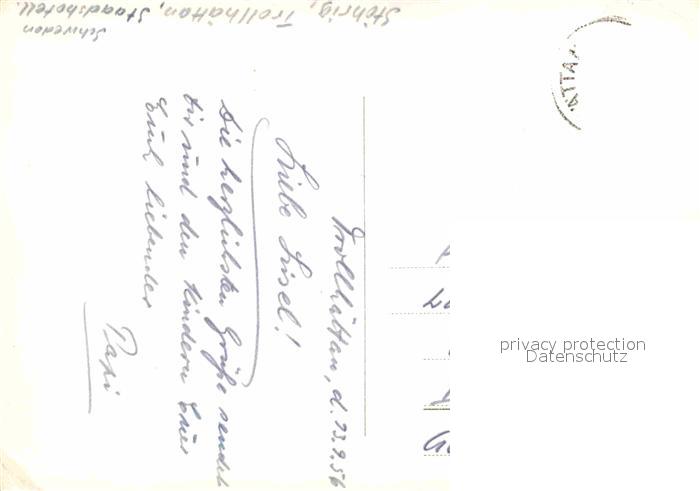 Störrig, Trollhättan, Staadshotell.
Schweden
Trollhättan, d. 13.9.56
Liebe Liesel!
Die herzlichsten Grüße sendet
Dir und den Kindern Euer
Euch liebender
Papi
ÄTTA
privacy protection
Datenschutz